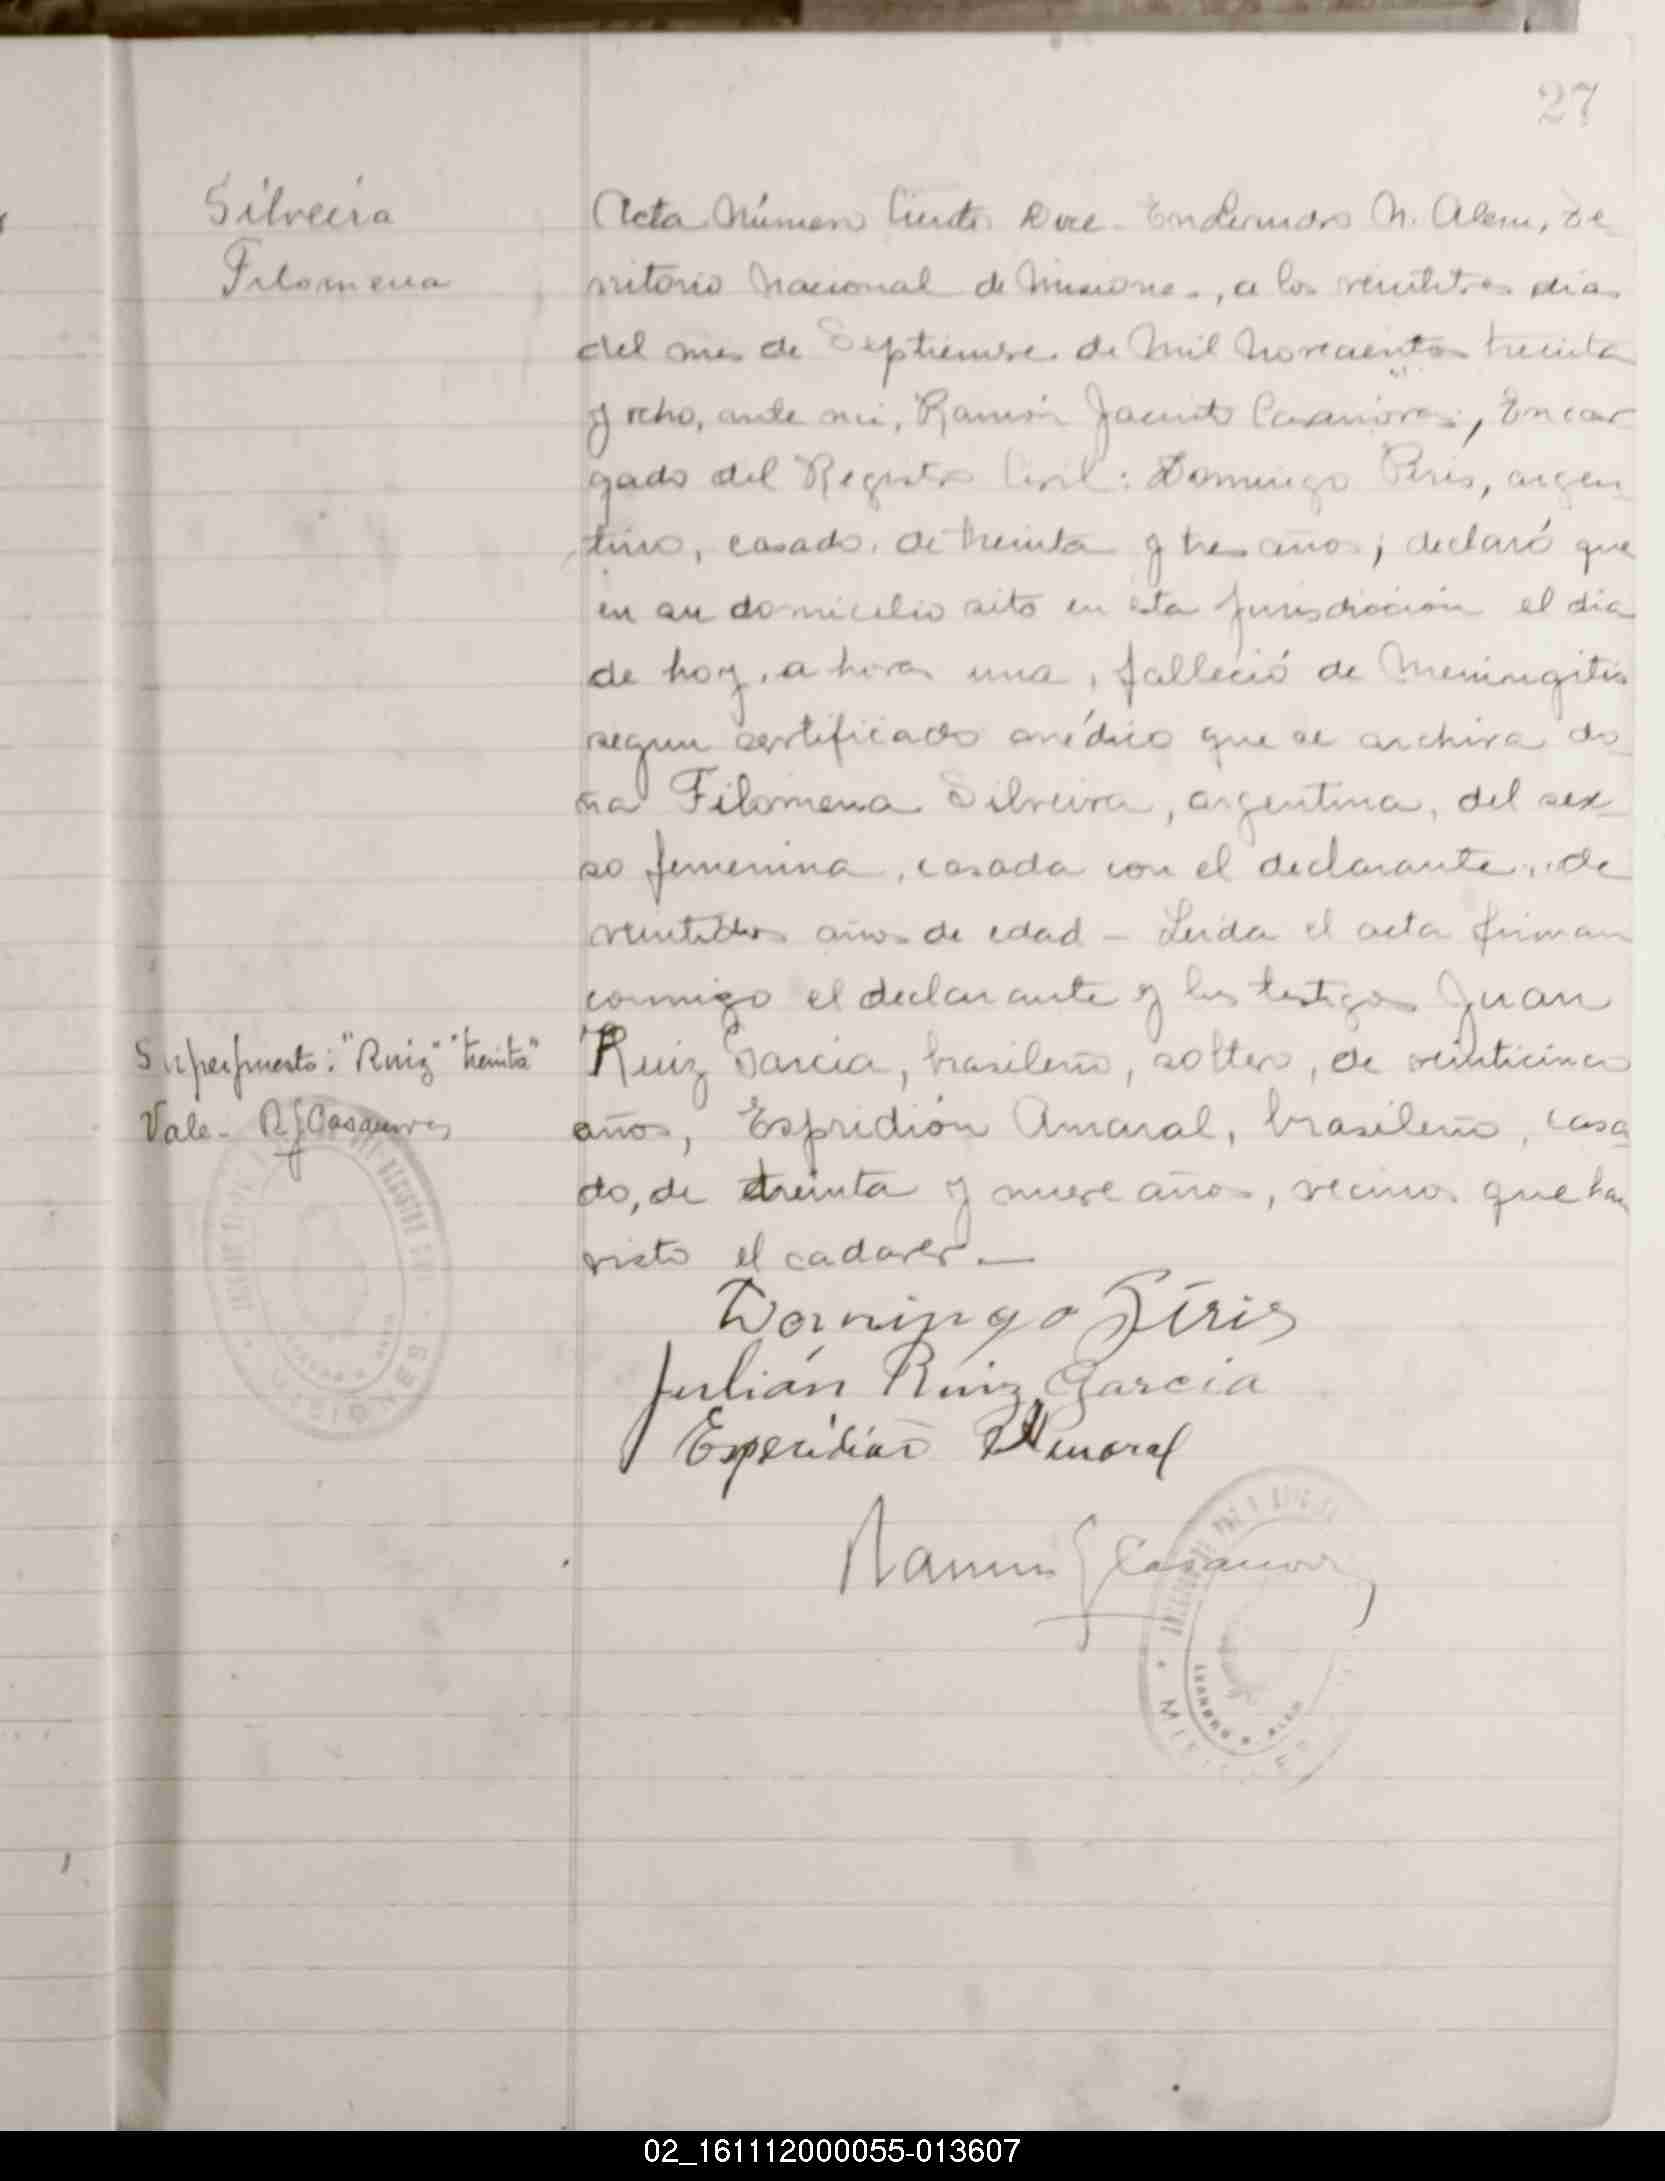 27
Silveira
Filomena
Acta Número Ciento Doce - En Leandro N. Alem, Te-
rritorio Nacional de Misiones, a los veintitres dias
del mes de Septiembre de Mil Novecientos treinta
y ocho, ante mi, Ramón Jacinto Casanova, Encar
gado del Registro Civil: Domingo Piris, argen-
tino, casado, de treinta y tres años; declaró que
en su domicilio sito en esta Jurisdicción el dia
de hoy, a horas una, falleció de Meningitis
segun certificado médico que se archiva do-
ña Filomena Silveira, argentina, del sex-
so femenina, casada con el declarante, de
veintidos años de edad - Leida el acta firman
conmigo el declarante y los testigos Juan
Ruiz Garcia, brasileño, soltero, de veinticinco
años, Espridión Amaral, brasileño, casa
do, de treinta y nueve años, vecinos que han
visto el cadaver. —
Superpuesto: "Ruiz" "treinta"
Vale - R J Casanova
Domingo Piris
Julián Ruiz Garcia
Esperidiao Amaral
Ramon J Casanova
LEANDRO N. ALEM
MISIONES
02_161112000055-013607